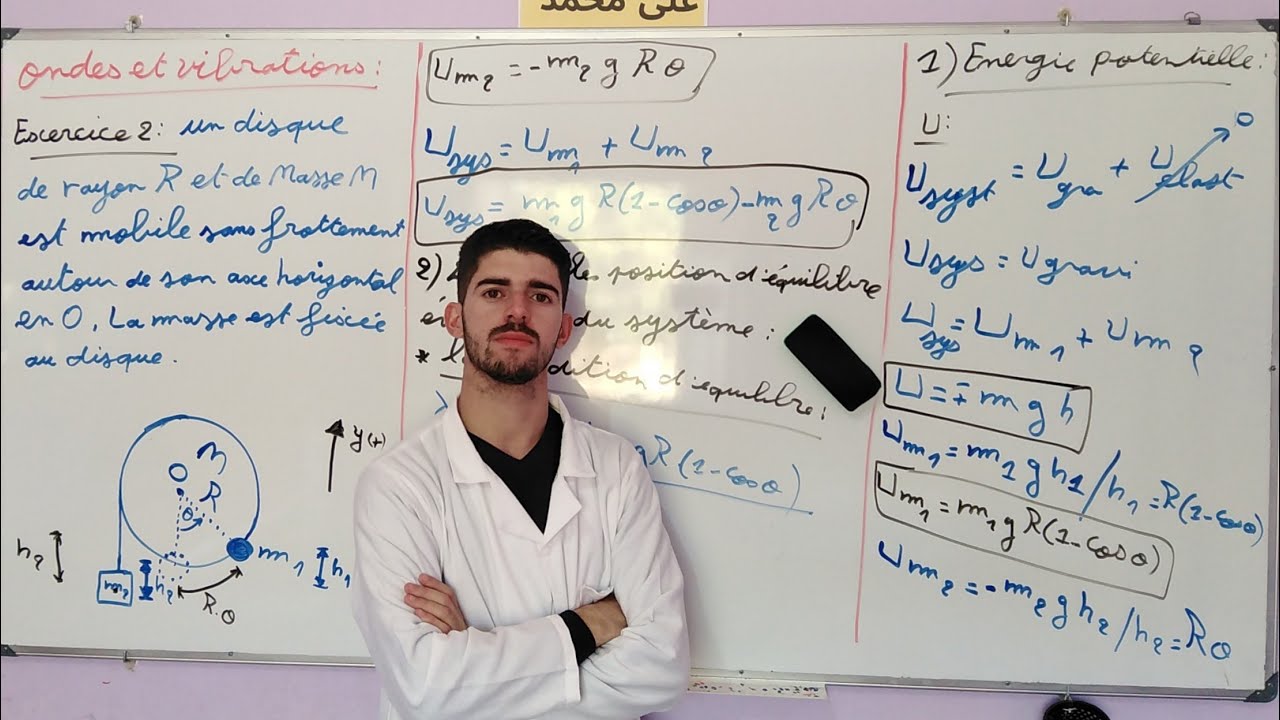 على محمد
ondes et vibrations :
Exercice 2 : un disque
de rayon R et de Masse M
est mobile sans frottement
autour de son axe horizontal
en O, La masse est fixée
au disque.
M
O
R
θ
y(+)
h2
m2
h2
R.θ
m1
h1
Um2 = -m2 g R θ
Usys = Um1 + Um2
Usys = m1 g R(1-cosθ)-m2 g R θ
2) les position d'équilibre
du système :
* dition d'équilibre :
gR(1-cosθ)
1) Energie potentielle :
U :
Usyst = Ugra + Uelast 0
Usys = Ugravi
Usys = Um1 + Um2
U = ∓ m g h
Um1 = m1 g h1 / h1 = R(1-cosθ)
Um1 = m1 g R(1-cosθ)
Um2 = -m2 g h2 / h2 = Rθ